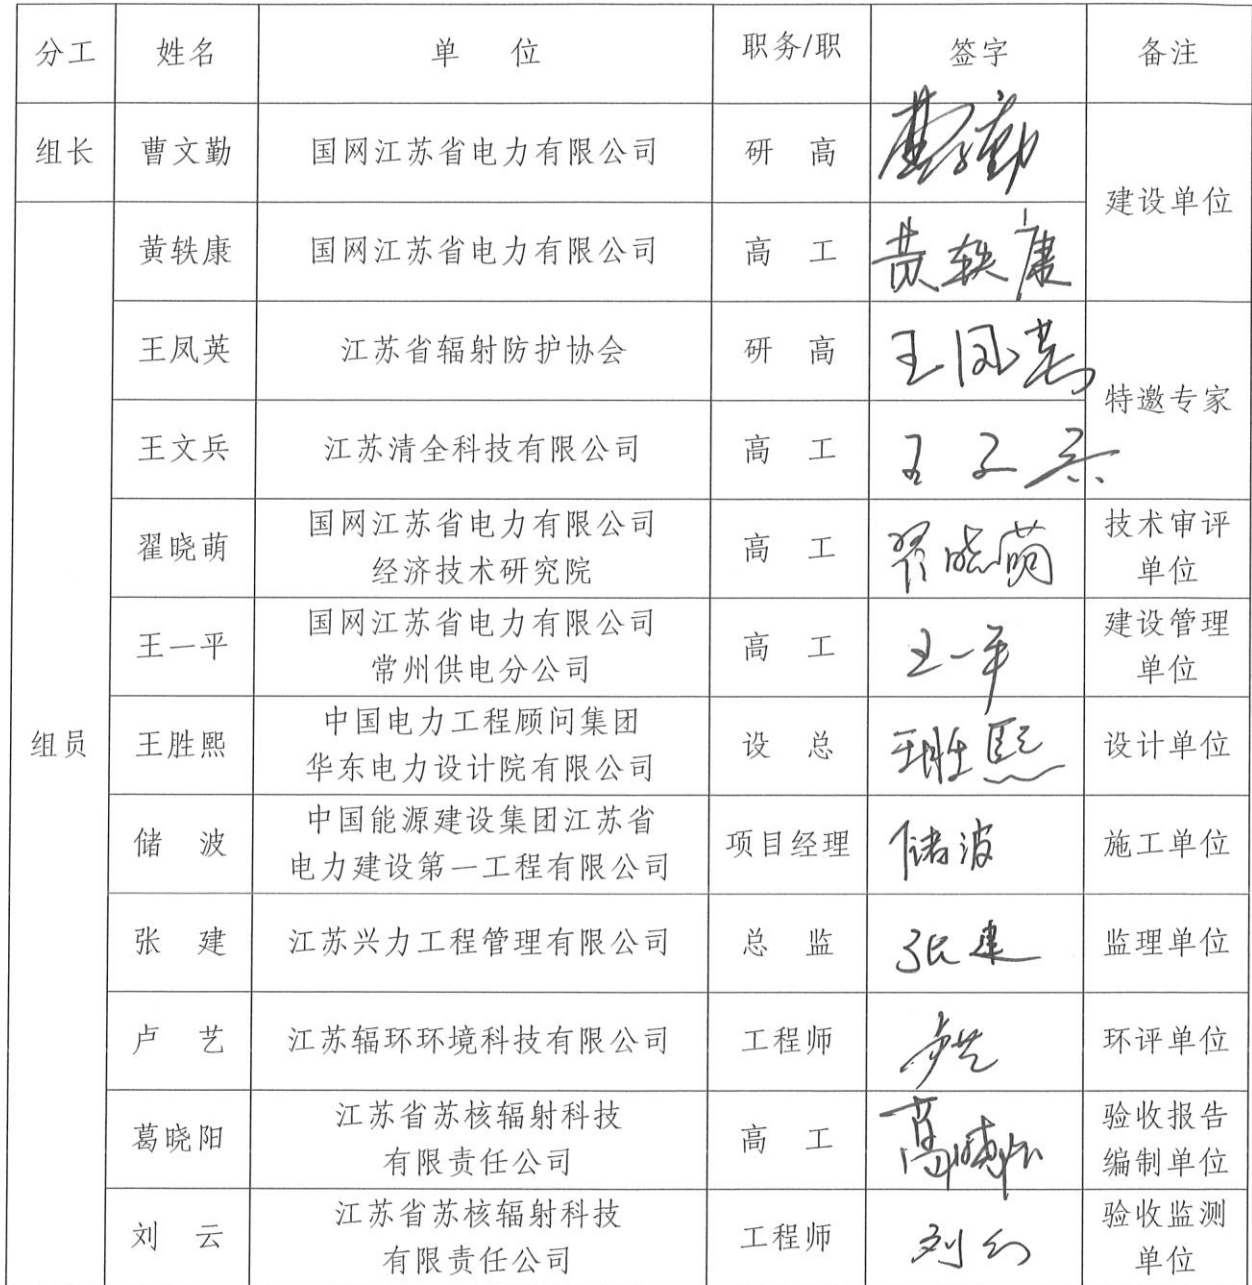 分工 姓名 单 位 职务/职 签字 备注
组长 曹文勤 国网江苏省电力有限公司 研 高 曹文勤 建设单位
组员 黄轶康 国网江苏省电力有限公司 高 工 黄轶康
王凤英 江苏省辐射防护协会 研 高 王凤英 特邀专家
王文兵 江苏清全科技有限公司 高 工 王文兵
翟晓萌 国网江苏省电力有限公司
经济技术研究院 高 工 翟晓萌 技术审评
单位
王一平 国网江苏省电力有限公司
常州供电分公司 高 工 王一平 建设管理
单位
王胜熙 中国电力工程顾问集团
华东电力设计院有限公司 设 总 王胜熙 设计单位
储 波 中国能源建设集团江苏省
电力建设第一工程有限公司 项目经理 储波 施工单位
张 建 江苏兴力工程管理有限公司 总 监 张建 监理单位
卢 艺 江苏辐环环境科技有限公司 工程师 卢艺 环评单位
葛晓阳 江苏省苏核辐射科技
有限责任公司 高 工 葛晓阳 验收报告
编制单位
刘 云 江苏省苏核辐射科技
有限责任公司 工程师 刘云 验收监测
单位